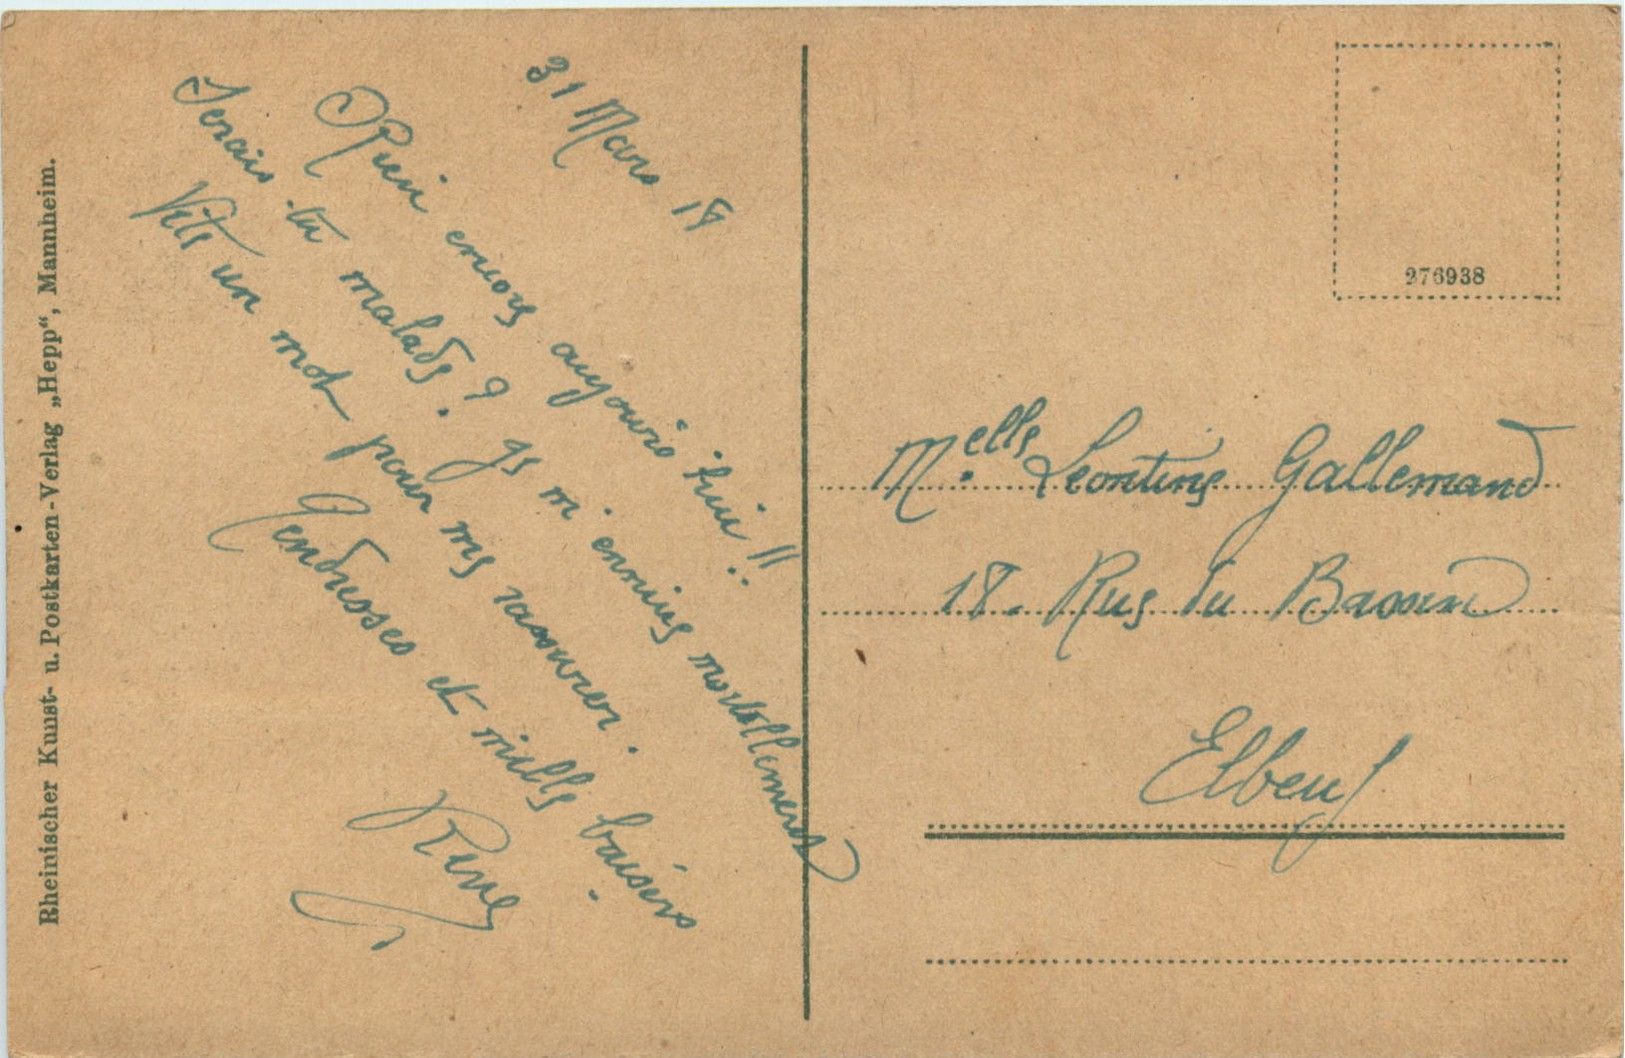 31 Mars 18
Rien encore aujourd'hui !!
Serais-tu malade ? Je m'ennuie mortellement
Vite un mot pour me rassurer.
Tendresses et mille baisers
René
Melle Leontine Gallemand
18. Rue du Bassin
Elbeuf
276938
Rheinischer Kunst- u. Postkarten-Verlag „Hepp“, Mannheim.